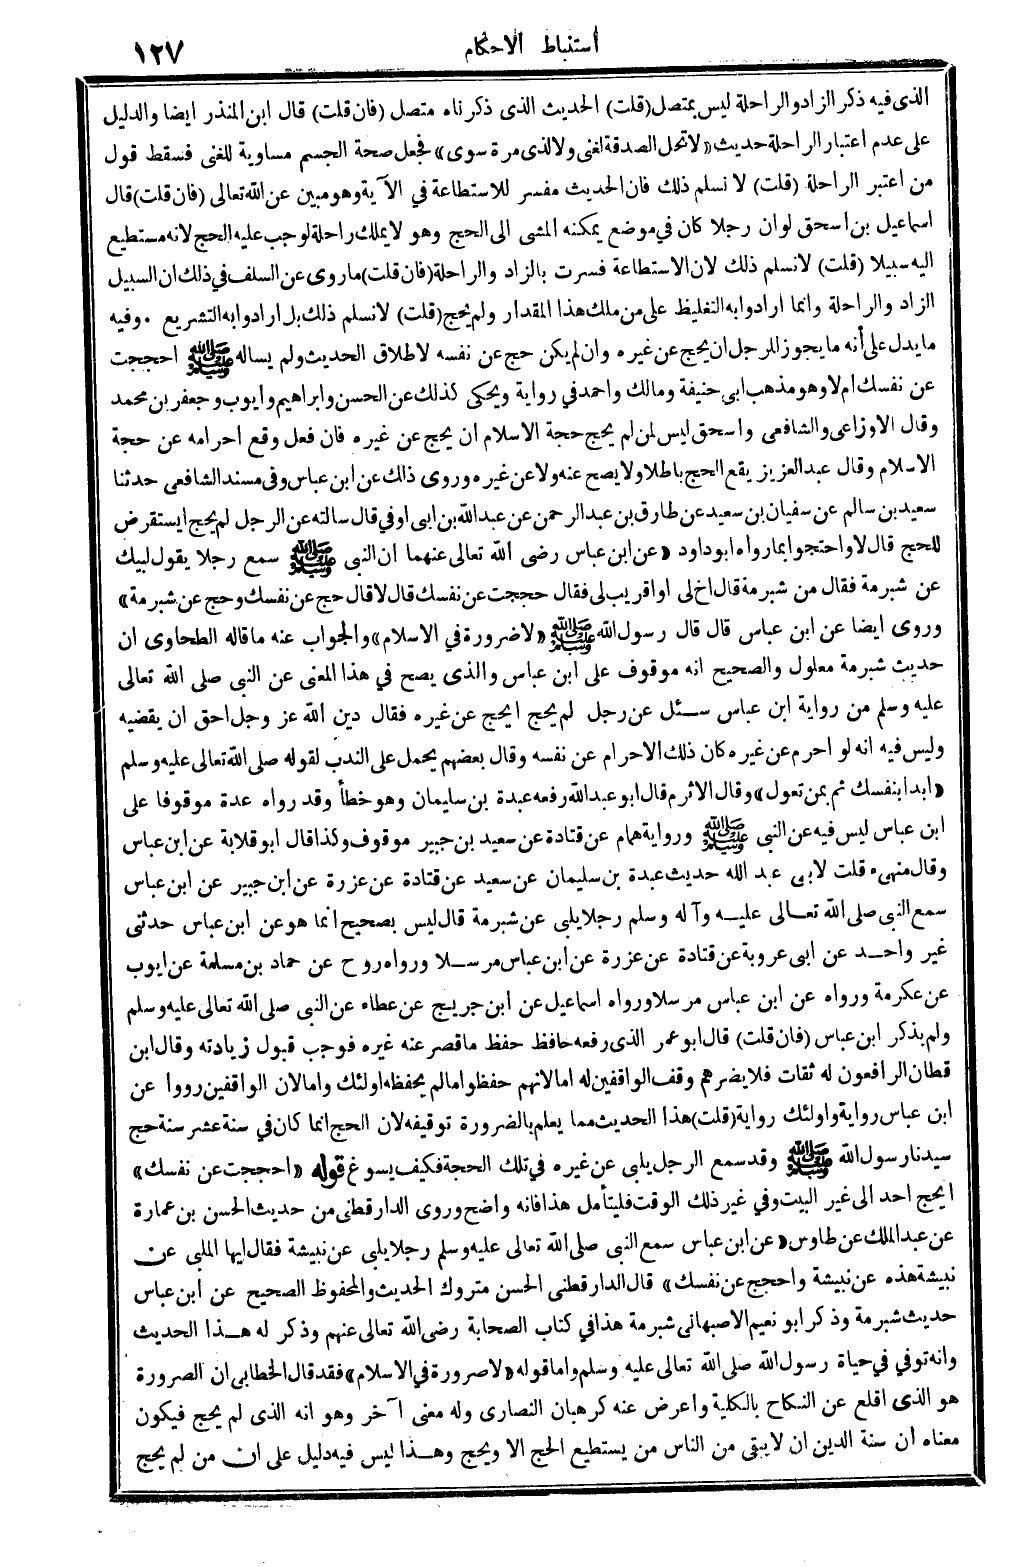 ١٢٧ أستنباط الاحكام
الذى فيه ذكر الزاد والراحلة ليس بمتصل (قلت) الحديث الذى ذكرناه متصل (فان قلت) قال ابن المنذر ايضا والدليل
على عدم اعتبار الراحلة حديث «لا تحل الصدقة لغنى ولا لذى مرة سوى» فجعل صحة الجسم مساوية للغنى فسقط قول
من اعتبر الراحلة (قلت) لا نسلم ذلك فان الحديث مفسر للاستطاعة في الآية وهو مبين عن الله تعالى (فان قلت) قال
اسماعيل بن اسحق لو ان رجلا كان في موضع يمكنه المشى الى الحج وهو لا يملك راحلة لوجب عليه الحج لانه مستطيع
اليه سبيلا (قلت) لانسلم ذلك لان الاستطاعة فسرت بالزاد والراحلة (فان قلت) ما روى عن السلف في ذلك ان السبيل
الزاد والراحلة وانما ارادوا به التغليظ على من ملك هذا المقدار ولم يحج (قلت) لانسلم ذلك بل ارادوا به التشريع . وفيه
ما يدل على أنه ما يجوز للرجل ان يحج عن غيره وان لم يكن حج عن نفسه لاطلاق الحديث ولم يساله ﷺ احججت
عن نفسك ام لا وهو مذهب ابى حنيفة ومالك واحمد في رواية ويحكى كذلك عن الحسن وابراهيم وايوب وجعفر بن محمد
وقال الاوزاعى والشافعى واسحق ليس لمن لم يحج حجة الاسلام ان يحج عن غيره فان فعل وقع احرامه عن حجة
الاسلام وقال عبد العزيز يقع الحج باطلا ولا يصح عنه ولا عن غيره وروى ذلك عن ابن عباس وفى مسند الشافعى حدثنا
سعيد بن سالم عن سفيان بن سعيد عن طارق بن عبد الرحمن عن عبد الله بن ابى اوفي قال سالته عن الرجل لم يحج ايستقرض
للحج قال لا واحتجوا بما رواه ابو داود «عن ابن عباس رضى الله تعالى عنهما ان النبى ﷺ سمع رجلا يقول لبيك
عن شبرمة فقال من شبرمة قال اخ لى او قريب لى فقال حججت عن نفسك قال لا قال حج عن نفسك وحج عن شبرمة»
وروى ايضا عن ابن عباس قال قال رسول الله ﷺ «لا ضرورة في الاسلام» والجواب عنه ما قاله الطحاوى ان
حديث شبرمة معلول والصحيح انه موقوف على ابن عباس والذى يصح في هذا المعنى عن النبى صلى الله تعالى
عليه وسلم من رواية ابن عباس سئل عن رجل لم يحج ايحج عن غيره فقال دين الله عز وجل احق ان يقضيه
وليس فيه انه لو احرم عن غيره كان ذلك الاحرام عن نفسه وقال بعضهم يحمل على الندب لقوله صلى الله تعالى عليه وسلم
«ابدا بنفسك ثم بمن تعول» وقال الاثرم قال ابو عبد الله رفعه عبدة بن سليمان وهو خطأ وقد رواه عدة موقوفا على
ابن عباس ليس فيه عن النبى ﷺ ورواية همام عن قتادة عن سعيد بن جبير موقوف وكذا قال ابو قلابة عن ابن عباس
وقال منهىء قلت لابى عبد الله حديث عبدة بن سليمان عن سعيد عن قتادة عن عزرة عن ابن جبير عن ابن عباس
سمع النبى صلى الله تعالى عليه وآله وسلم رجلا يلبى عن شبرمة قال ليس بصحيح انما هو عن ابن عباس حدثنى
غير واحد عن ابى عروبة عن قتادة عن عزرة عن ابن عباس مرسلا ورواه روح عن حماد بن مسلمة عن ايوب
عن عكرمة ورواه عن ابن عباس مرسلا ورواه اسماعيل عن ابن جريج عن عطاء عن النبى صلى الله تعالى عليه وسلم
ولم يذكر ابن عباس (فان قلت) قال ابو عمر الذى رفعه حافظ حفظ ما قصر عنه غيره فوجب قبول زيادته وقال ابن
قطان الرافعون له ثقات فلا يضرهم وقف الواقفين له اما لانهم حفظوا ما لم يحفظه اولئك واما لان الواقفين رووا عن
ابن عباس رواية واولئك رواية (قلت) هذا الحديث مما يعلم بالضرورة توقيفه لان الحج انما كان في سنة عشر سنة حج
سيدنا رسول الله ﷺ وقد سمع الرجل يلبى عن غيره في تلك الحجة فكيف يسوغ قوله «احججت عن نفسك»
ايحج احد الى غير البيت وفي غير ذلك الوقت فليتأمل هذا فانه واضح وروى الدارقطنى من حديث الحسن بن عمارة
عن عبد الملك عن طاوس «عن ابن عباس سمع النبى صلى الله تعالى عليه وسلم رجلا يلبى عن نبيشة فقال ايها الملبى عن
نبيشة هذه عن نبيشة واحجج عن نفسك» قال الدارقطنى الحسن متروك الحديث والمحفوظ الصحيح عن ابن عباس
حديث شبرمة وذكر ابو نعيم الاصبهانى شبرمة هذا في كتاب الصحابة رضى الله تعالى عنهم وذكر له هذا الحديث
وانه توفي في حياة رسول الله صلى الله تعالى عليه وسلم واما قوله «لا صرورة في الاسلام» فقد قال الخطابى ان الصرورة
هو الذى اقلع عن النكاح بالكلية واعرض عنه كرهبان النصارى وله معنى آخر وهو انه الذى لم يحج فيكون
معناه ان سنة الدين ان لا يبقى من الناس من يستطيع الحج الا ويحج وهذا ليس فيه دليل على ان من لم يحج